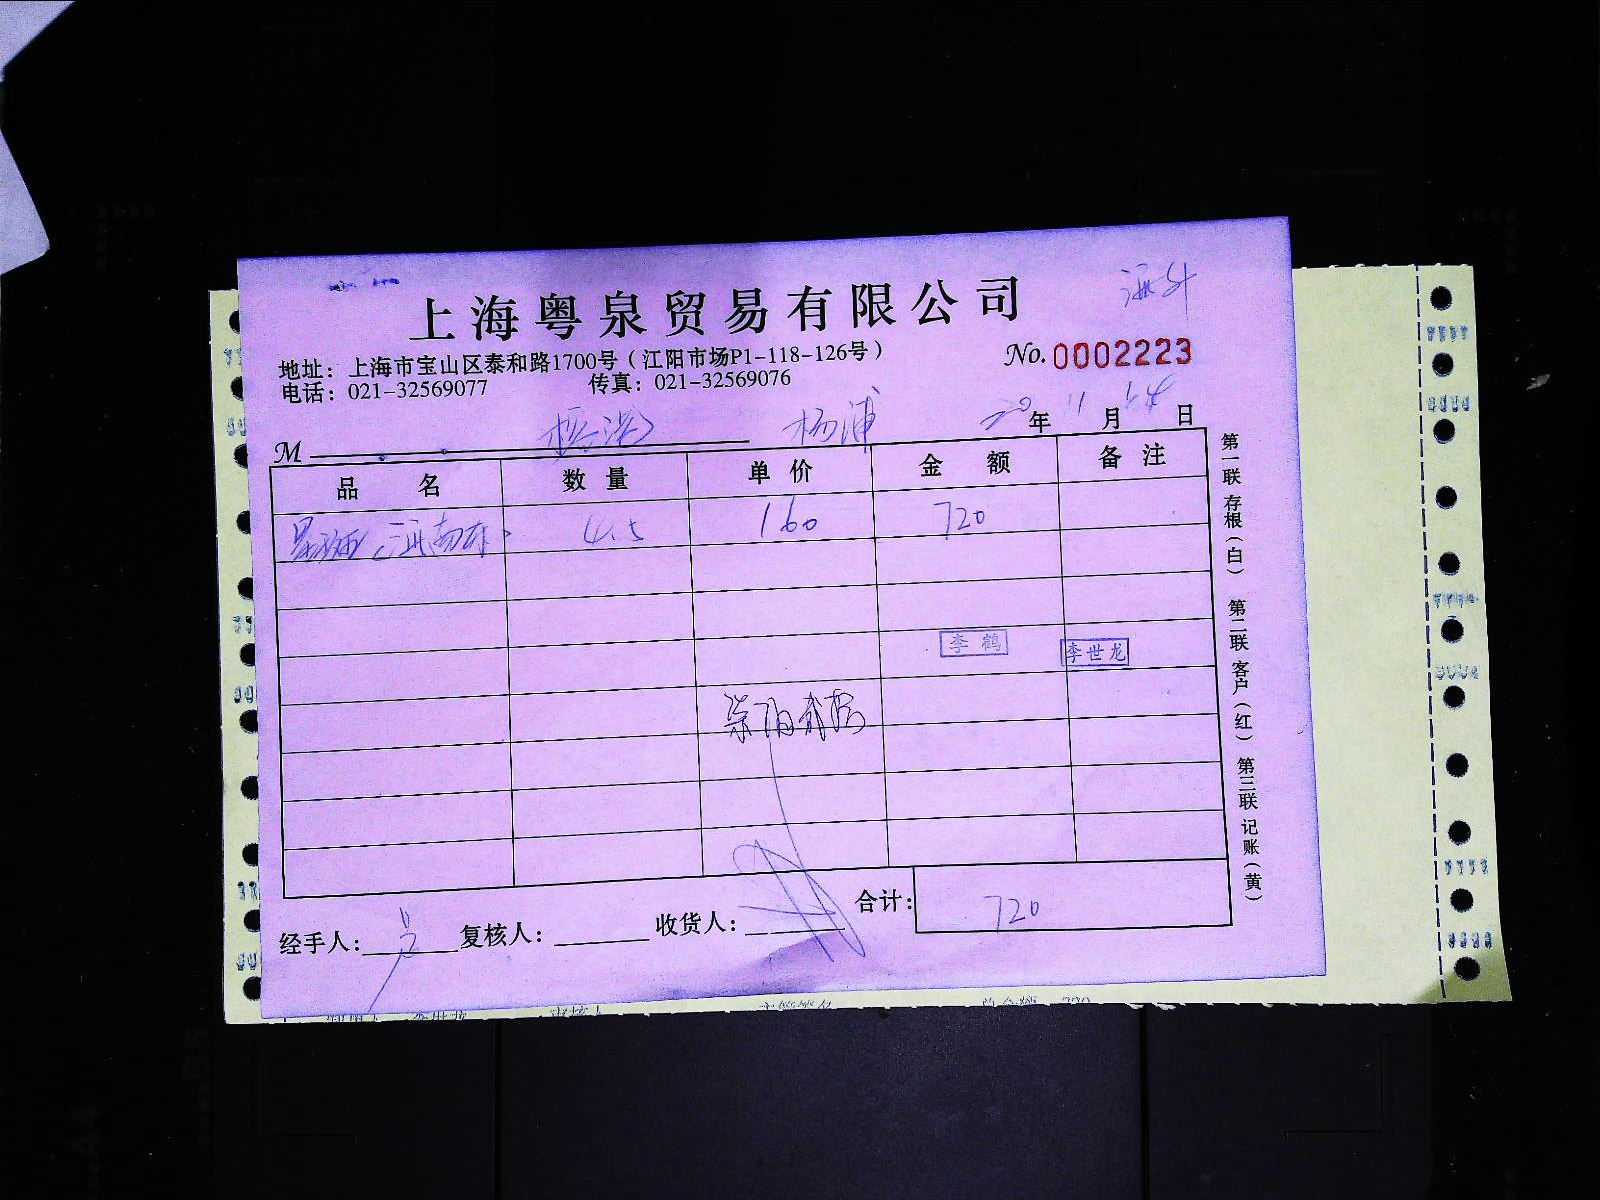 上海粤泉贸易有限公司
地址：上海市宝山区泰和路1700号（江阳市场P1-118-126号）
No.0002223
电话：021-32569077 传真：021-32569076
杨浦 20年11月24日
M
品名 数量 单价 金额 备注
4.5 160 720
李鹤 李世龙
合计：720
经手人： 复核人： 收货人：
第一联 存根（白） 第二联 客户（红） 第三联 记账（黄）